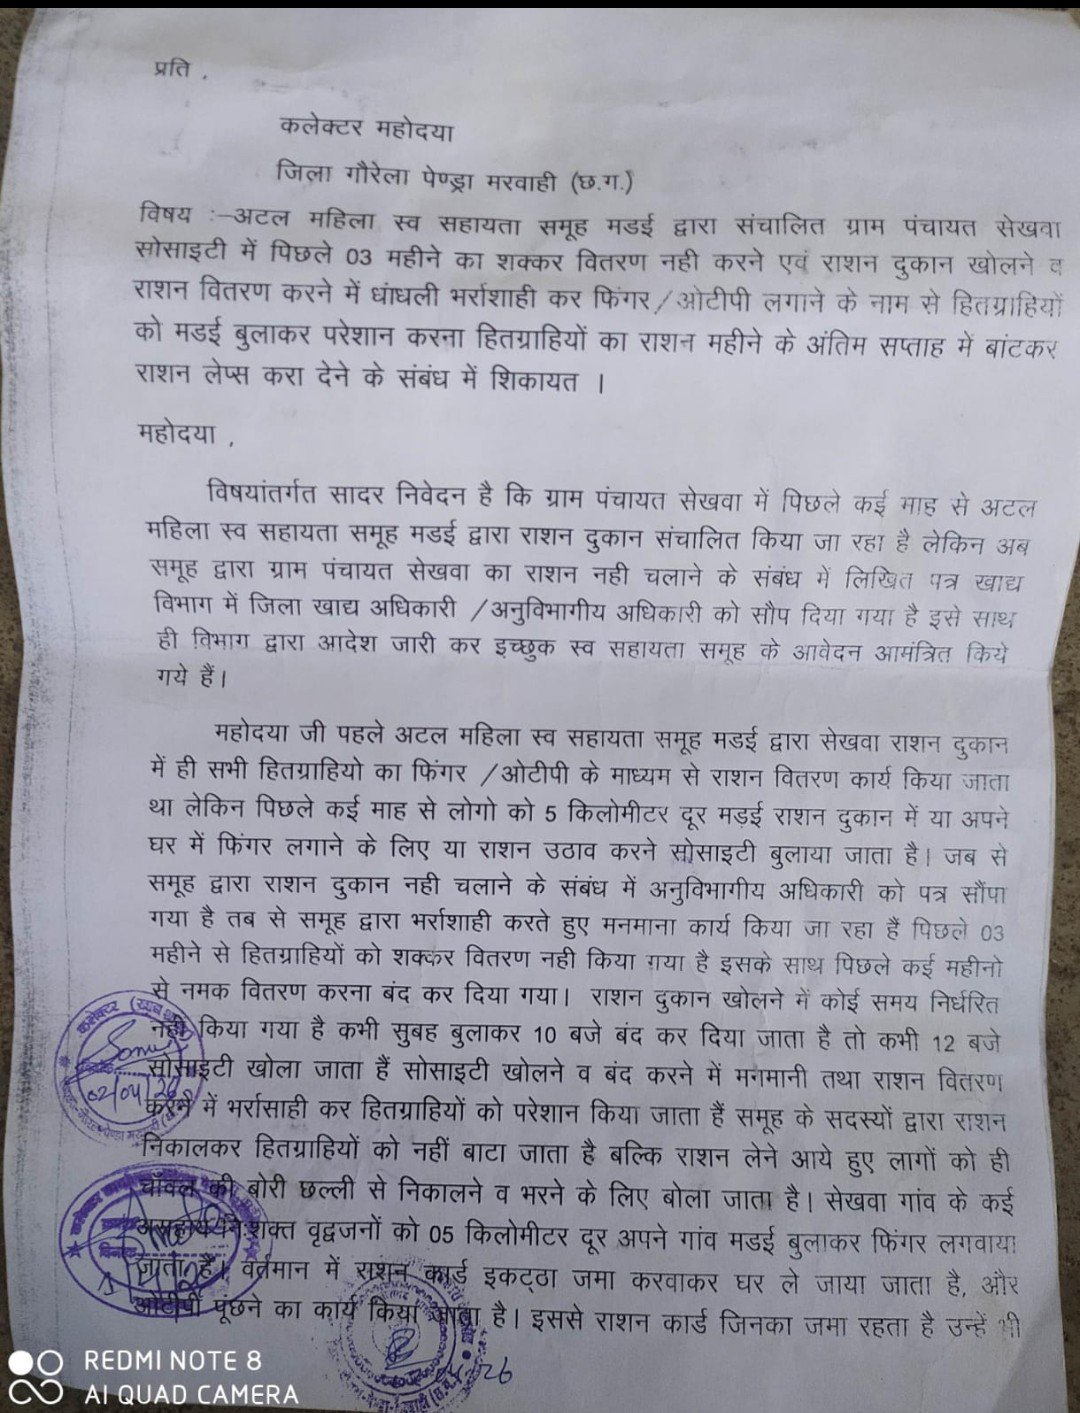 प्रति ,
कलेक्टर महोदया
जिला गौरेला पेण्ड्रा मरवाही (छ.ग.)
विषय :–अटल महिला स्व सहायता समूह मडई द्वारा संचालित ग्राम पंचायत सेखवा
सोसाइटी में पिछले 03 महीने का शक्कर वितरण नही करने एवं राशन दुकान खोलने व
राशन वितरण करने में धांधली भर्राशाही कर फिंगर/ओटीपी लगाने के नाम से हितग्राहियों
को मडई बुलाकर परेशान करना हितग्राहियों का राशन महीने के अंतिम सप्ताह में बांटकर
राशन लेप्स करा देने के संबंध में शिकायत ।
महोदया ,
विषयांतर्गत सादर निवेदन है कि ग्राम पंचायत सेखवा में पिछले कई माह से अटल
महिला स्व सहायता समूह मडई द्वारा राशन दुकान संचालित किया जा रहा है लेकिन अब
समूह द्वारा ग्राम पंचायत सेखवा का राशन नही चलाने के संबंध में लिखित पत्र खाद्य
विभाग में जिला खाद्य अधिकारी /अनुविभागीय अधिकारी को सौप दिया गया है इसे साथ
ही विभाग द्वारा आदेश जारी कर इच्छुक स्व सहायता समूह के आवेदन आमंत्रित किये
गये हैं।
महोदया जी पहले अटल महिला स्व सहायता समूह मडई द्वारा सेखवा राशन दुकान
में ही सभी हितग्राहियो का फिंगर /ओटीपी के माध्यम से राशन वितरण कार्य किया जाता
था लेकिन पिछले कई माह से लोगो को 5 किलोमीटर दूर मड़ई राशन दुकान में या अपने
घर में फिंगर लगाने के लिए या राशन उठाव करने सोसाइटी बुलाया जाता है। जब से
समूह द्वारा राशन दुकान नही चलाने के संबंध में अनुविभागीय अधिकारी को पत्र सौंपा
गया है तब से समूह द्वारा भर्राशाही करते हुए मनमाना कार्य किया जा रहा हैं पिछले 03
महीने से हितग्राहियों को शक्कर वितरण नही किया गया है इसके साथ पिछले कई महीनो
से नमक वितरण करना बंद कर दिया गया। राशन दुकान खोलने में कोई समय निर्धरित
नही किया गया है कभी सुबह बुलाकर 10 बजे बंद कर दिया जाता है तो कभी 12 बजे
सोसाइटी खोला जाता हैं सोसाइटी खोलने व बंद करने में मगमानी तथा राशन वितरण
करने में भर्रासाही कर हितग्राहियों को परेशान किया जाता हैं समूह के सदस्यों द्वारा राशन
निकालकर हितग्राहियों को नहीं बाटा जाता है बल्कि राशन लेने आये हुए लागों को ही
चॉवल की बोरी छल्ली से निकालने व भरने के लिए बोला जाता है। सेखवा गांव के कई
असहाय निशक्त वृद्वजनों को 05 किलोमीटर दूर अपने गांव मडई बुलाकर फिंगर लगवाया
जाता है। वर्तमान में राशन कार्ड इकट्ठा जमा करवाकर घर ले जाया जाता है, और
ओटीपी पूंछने का कार्य किया जाता है। इससे राशन कार्ड जिनका जमा रहता है उन्हें भी
कलेक्टर (खाद्य
02/04/26
REDMI NOTE 8
AI QUAD CAMERA